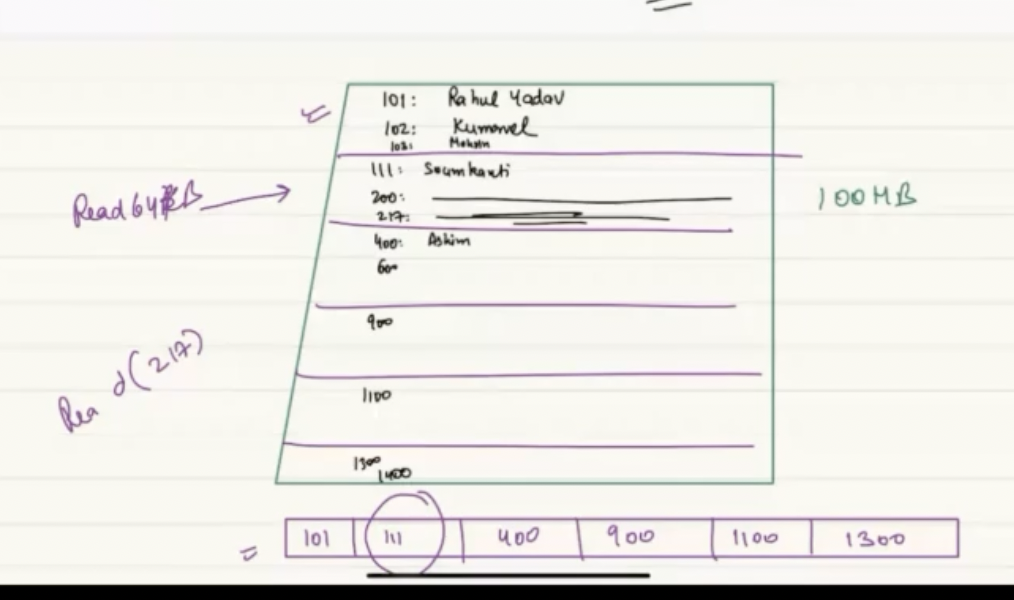 101: Rahul Yadav
102: Kummel
103: Mohsin
111: Soumkanti
200:
217:
400: Ashim
600
900
1100
1300
1400
Read 64KB
100MB
Read (217)
101 111 400 900 1100 1300